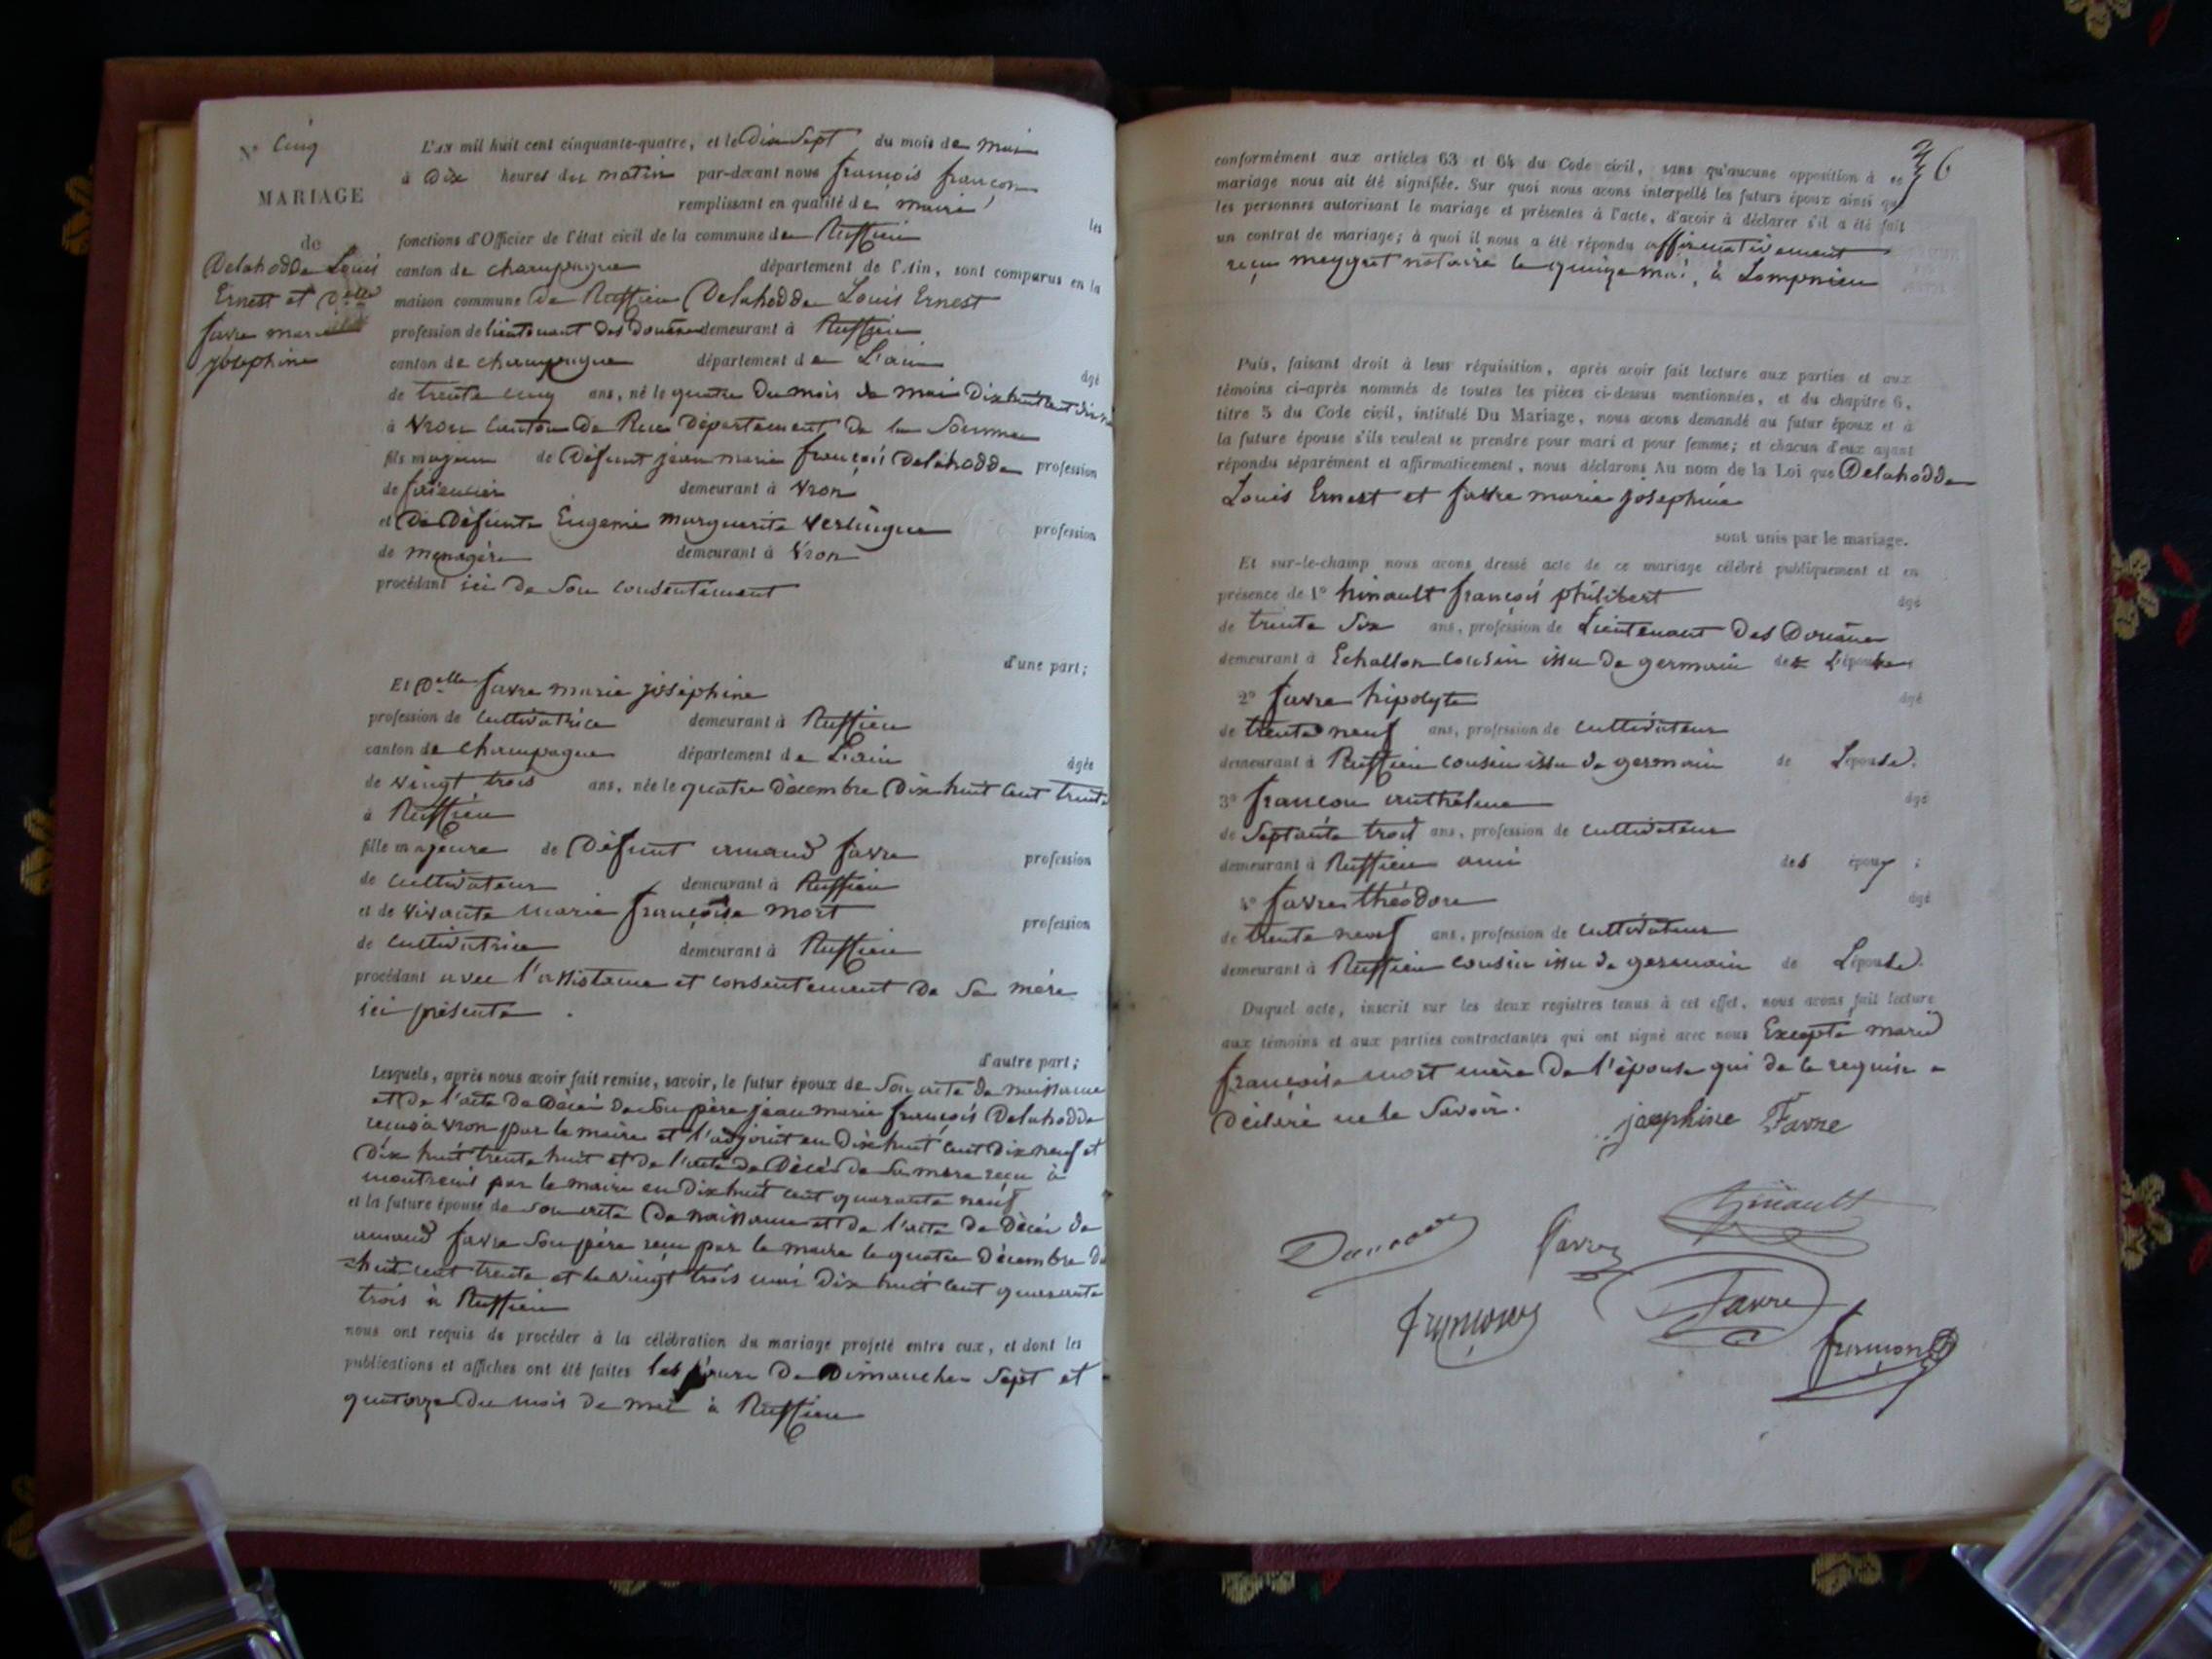 N° Cinq
MARIAGE
de
Delahodde Louis
Ernest et Delle
favre marie
josephine
L'AN mil huit cent cinquante-quatre, et le Dix Sept du mois de Mai
à Dix heures du matin par-devant nous françois françon
remplissant en qualité de maire les
fonctions d'Officier de l'état civil de la commune de Ruffieu
canton de champagne département de l'Ain, sont comparus en la
maison commune de Ruffieu Delahodde Louis Ernest
profession de lieutenant des Douane demeurant à Ruffieu
canton de champagne département de L'ain âgé
de trente cinq ans, né le quatre du mois de mai Dix huit cent dix
à Vron Canton De Rue Département De la Somme
fils majeur de Défunt jean marie françois Delahodde profession
de demeurant à Vron
et De Défunte Eugenie Marguerite Verlingue profession
de menagère demeurant à Vron
procédant ici De Son Consentement
d'une part;
Et Delle favre marie joséphine
profession de Cultivatrice demeurant à Ruffieu
canton de champagne département de L'ain âgée
de vingt trois ans, née le quatre Décembre Dix huit Cent trente
à Ruffieu
fille majeure de Défunt armand favre profession
de Cultivateur demeurant à Ruffieu
et de vivante Marie françoise mort profession
de Cultivatrice demeurant à Ruffieu
procédant avec l'assistance et consentement De Sa mère
ici présente .
d'autre part;
Lesquels, après nous avoir fait remise, savoir, le futur époux de Son acte de naissance
et de l'acte De Décès de Son père jean marie françois Delahodde
reçus à Vron par le maire et l'adjoint en Dix huit Cent Dix neuf et
Dix huit trente huit et de l'acte de Décès de Sa mère reçu à
par le maire en Dix huit cent quarante neuf
et la future épouse de Son acte De naissance et de l'acte De Décès De
armand favre Son père reçu par le maire le quatre Décembre Dix
huit cent trente et le vingt trois mai Dix huit Cent quarante
trois à Ruffieu
nous ont requis de procéder à la célébration du mariage projeté entre eux, et dont les
publications et affiches ont été faites les jours De Dimanches Sept et
quatorze Du mois de mai à Ruffieu
6
conformément aux articles 63 et 64 du Code civil, sans qu'aucune opposition à ce
mariage nous ait été signifiée. Sur quoi nous avons interpellé les futurs époux ainsi que
les personnes autorisant le mariage et présentes à l'acte, d'avoir à déclarer s'il a été fait
un contrat de mariage; à quoi il nous a été répondu affirmativement
reçu meygret notaire le quinze mai, à Lompnieu
Puis, faisant droit à leur réquisition, après avoir fait lecture aux parties et aux
témoins ci-après nommés de toutes les pièces ci-dessus mentionnées, et du chapitre 6,
titre 5 du Code civil, intitulé Du Mariage, nous avons demandé au futur époux et à
la future épouse s'ils veulent se prendre pour mari et pour femme; et chacun d'eux ayant
répondu séparément et affirmativement, nous déclarons Au nom de la Loi que Delahodde
Louis Ernest et favre marie josephine
sont unis par le mariage.
Et sur-le-champ nous avons dressé acte de ce mariage célébré publiquement et en
présence de 1° hinault françois philibert âgé
de trente Six ans, profession de Lieutenant Des Douane
demeurant à Echallon Cousin issu De germain de L'épouse;
2° favre hipolyte âgé
de trente neuf ans, profession de Cultivateur
demeurant à Ruffieu cousin issu de germain de L'épouse;
3° françon anthelme âgé
de Septante trois ans, profession de Cultivateur
demeurant à Ruffieu ami des époux ;
4° favre théodore âgé
de trente neuf ans, profession de Cultivateur
demeurant à Ruffieu cousin issu de germain de L'épouse.
Duquel acte, inscrit sur les deux registres tenus à cet effet, nous avons fait lecture
aux témoins et aux parties contractantes qui ont signé avec nous Excepté marie
françoise mort mère De l'épouse qui de le requise a
Déclaré ne le Savoir.
josephine Favre
hinault
favre
Favre
françon
françon